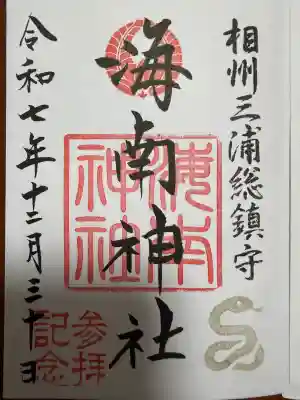 相州三浦総鎮守
海南神社
海南神社
令和七年十二月三十日
参拝
記念